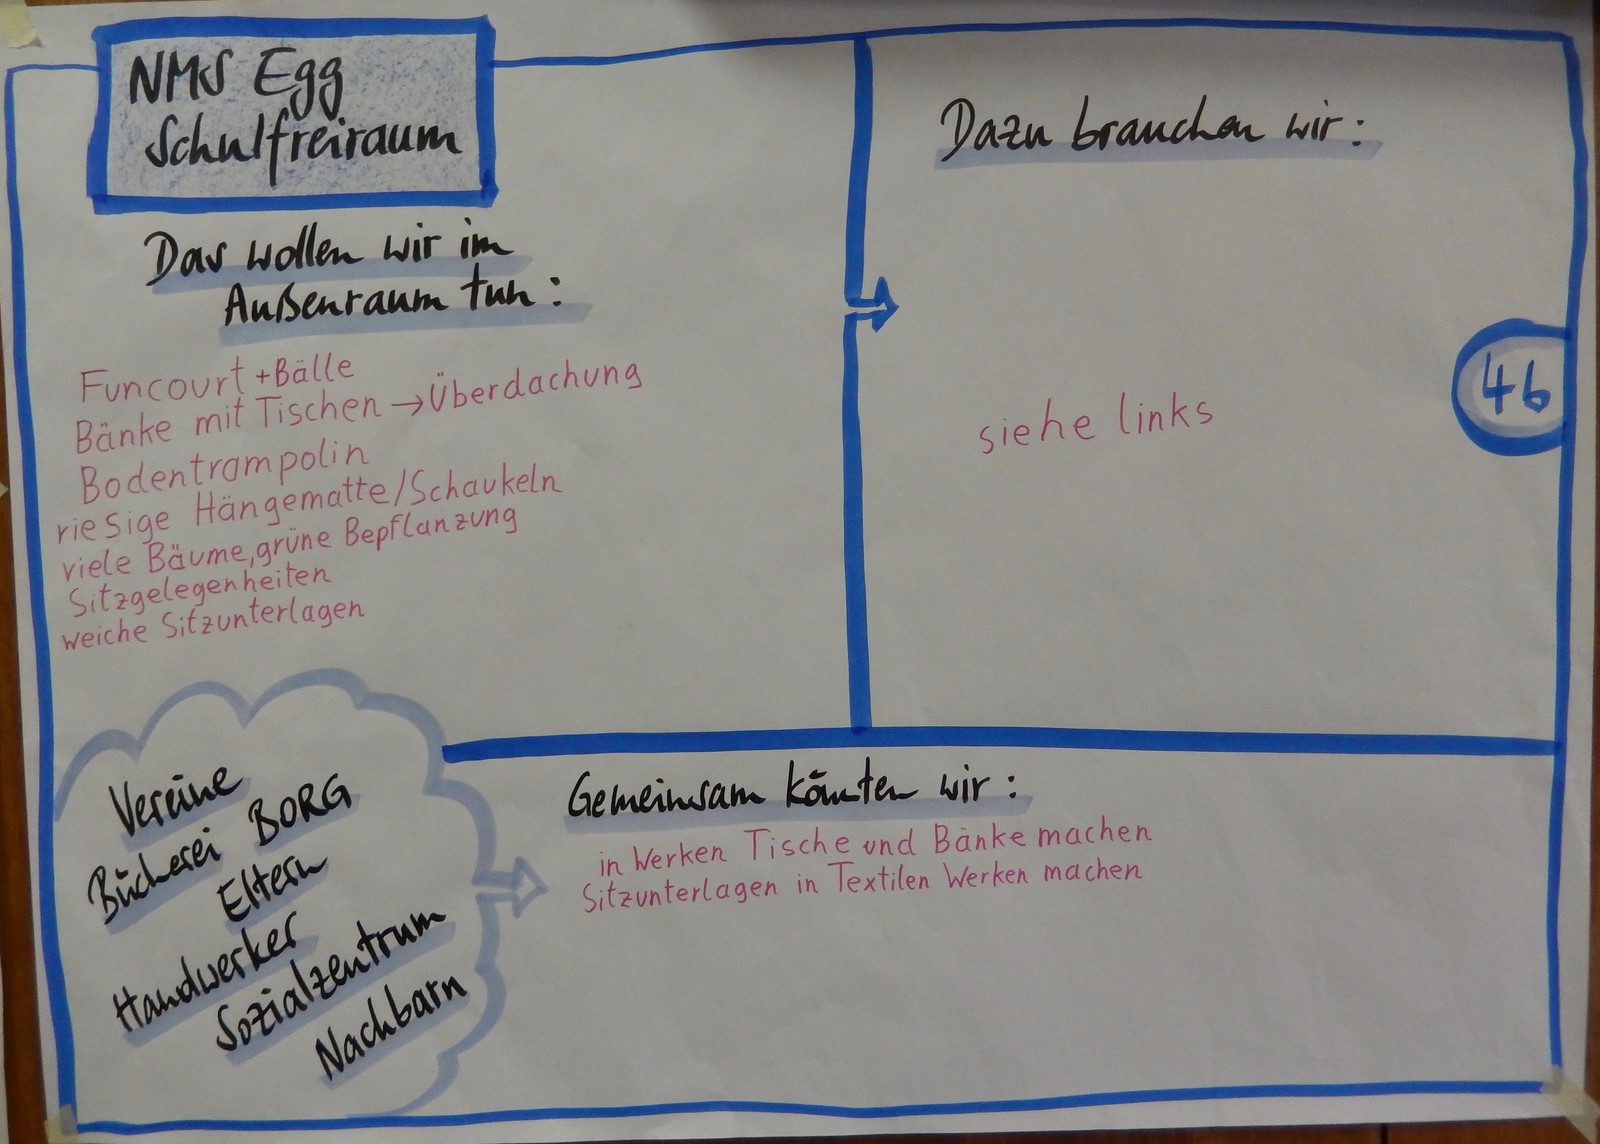 NMS Egg
Schulfreiraum
Das wollen wir im
Außenraum tun:
Funcourt + Bälle
Bänke mit Tischen → Überdachung
Bodentrampolin
riesige Hängematte/Schaukeln
viele Bäume, grüne Bepflanzung
Sitzgelegenheiten
weiche Sitzunterlagen
Dazu brauchen wir:
siehe links
4b
Vereine
Bücherei BORG
Eltern
Handwerker
Sozialzentrum
Nachbarn
Gemeinsam könnten wir:
in Werken Tische und Bänke machen
Sitzunterlagen in Textilen Werken machen